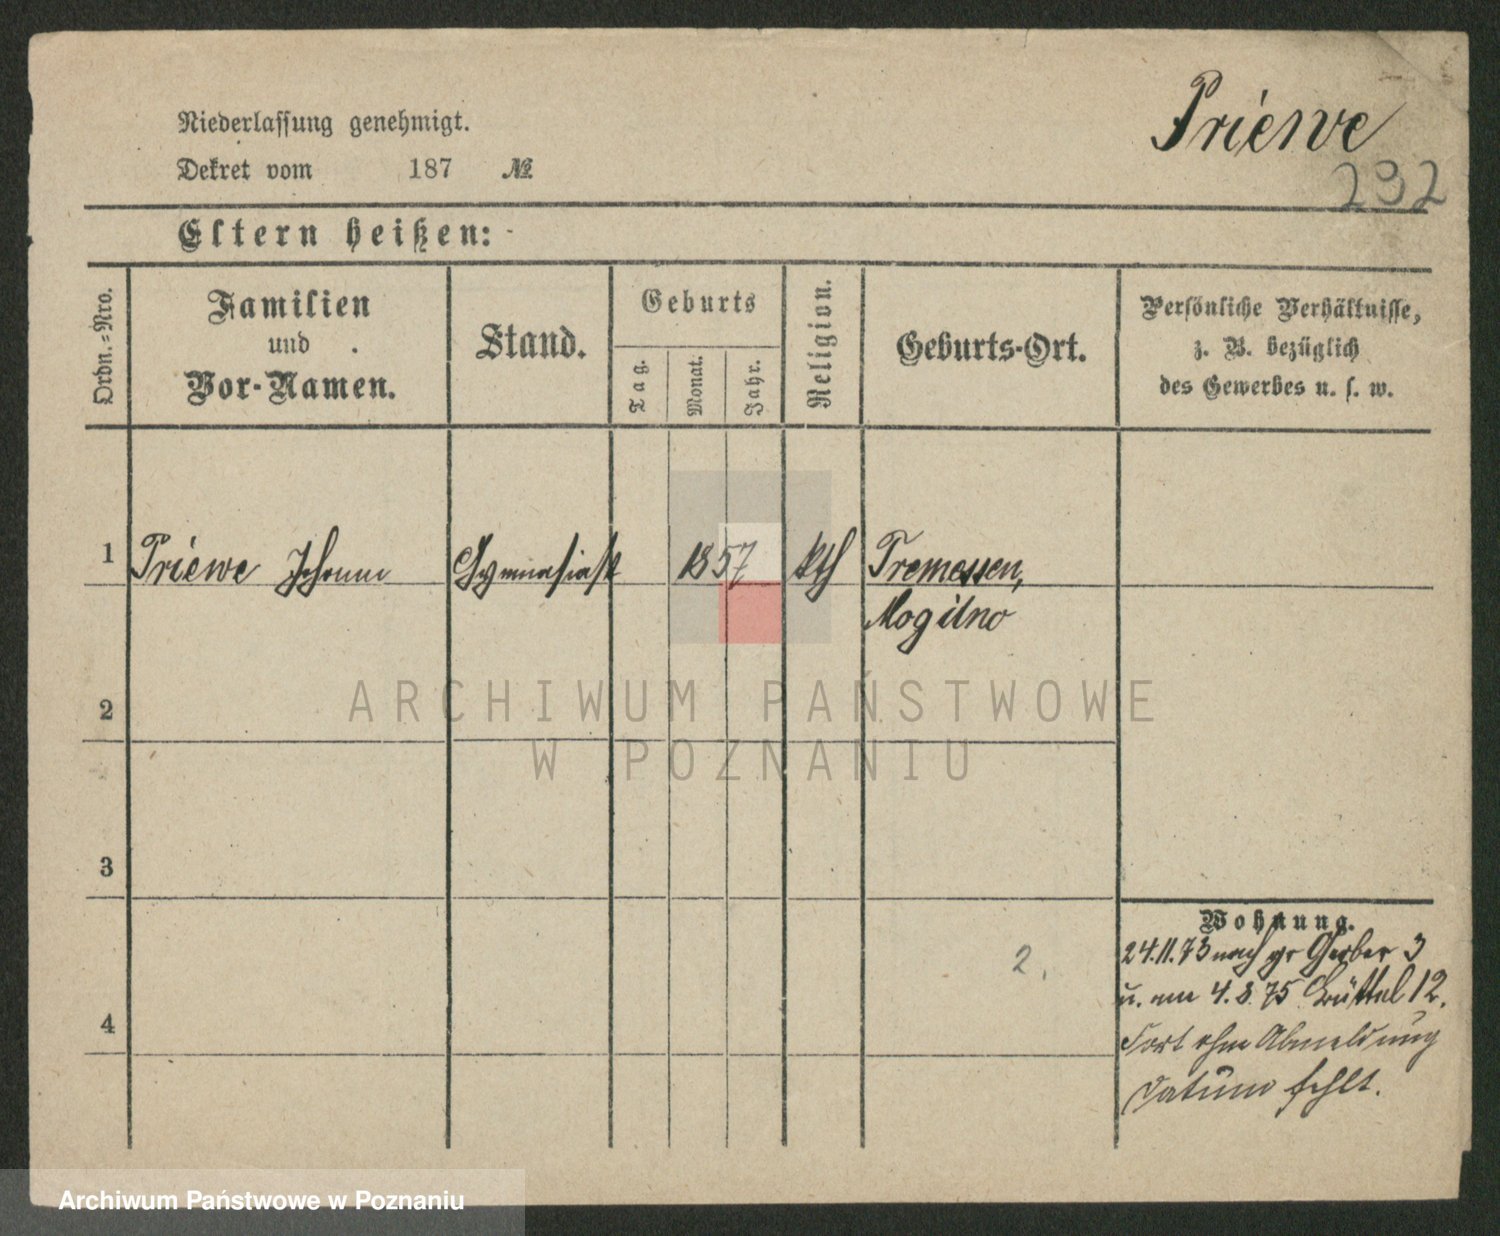 Priewe
232
Niederlassung genehmigt.
Dekret vom 187 №
Eltern heißen:
Ordn.=Nro.
Familien
und
Vor-Namen.
Stand.
Geburts
Tag.
Monat.
Jahr.
Religion.
Geburts-Ort.
Persönliche Verhältnisse,
z. B. bezüglich
des Gewerbes u. s. w.
1 Priewe Johann Gymnasiast 1857 kth Tremessen,
Mogilno
ARCHIWUM PAŃSTWOWE
W POZNANIU
2
3
4
2.
Wohnung.
24.11.73 nach gr Gerber 3
u. am 4.8.75 Büttel 12.
Fort ohne Abmeldung
Datum fehlt.
Archiwum Państwowe w Poznaniu